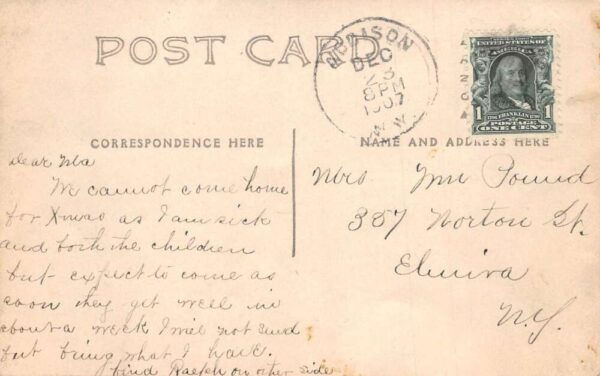 POST CARD
ADDISON
DEC
23
8 PM
1907
N.Y.
UNITED STATES
1 FRANKLIN 1
POSTAGE
ONE CENT
CORRESPONDENCE HERE
NAME AND ADDRESS HERE
Dear Ma
We cannot come home
for Xmas as I am sick
and both the children
but expect to come as
soon they get well in
about a week I will not send
but bring what I have.
find Ralph on other side
Mrs. Wm Pound
357 Norton St.
Elmira
N.Y.